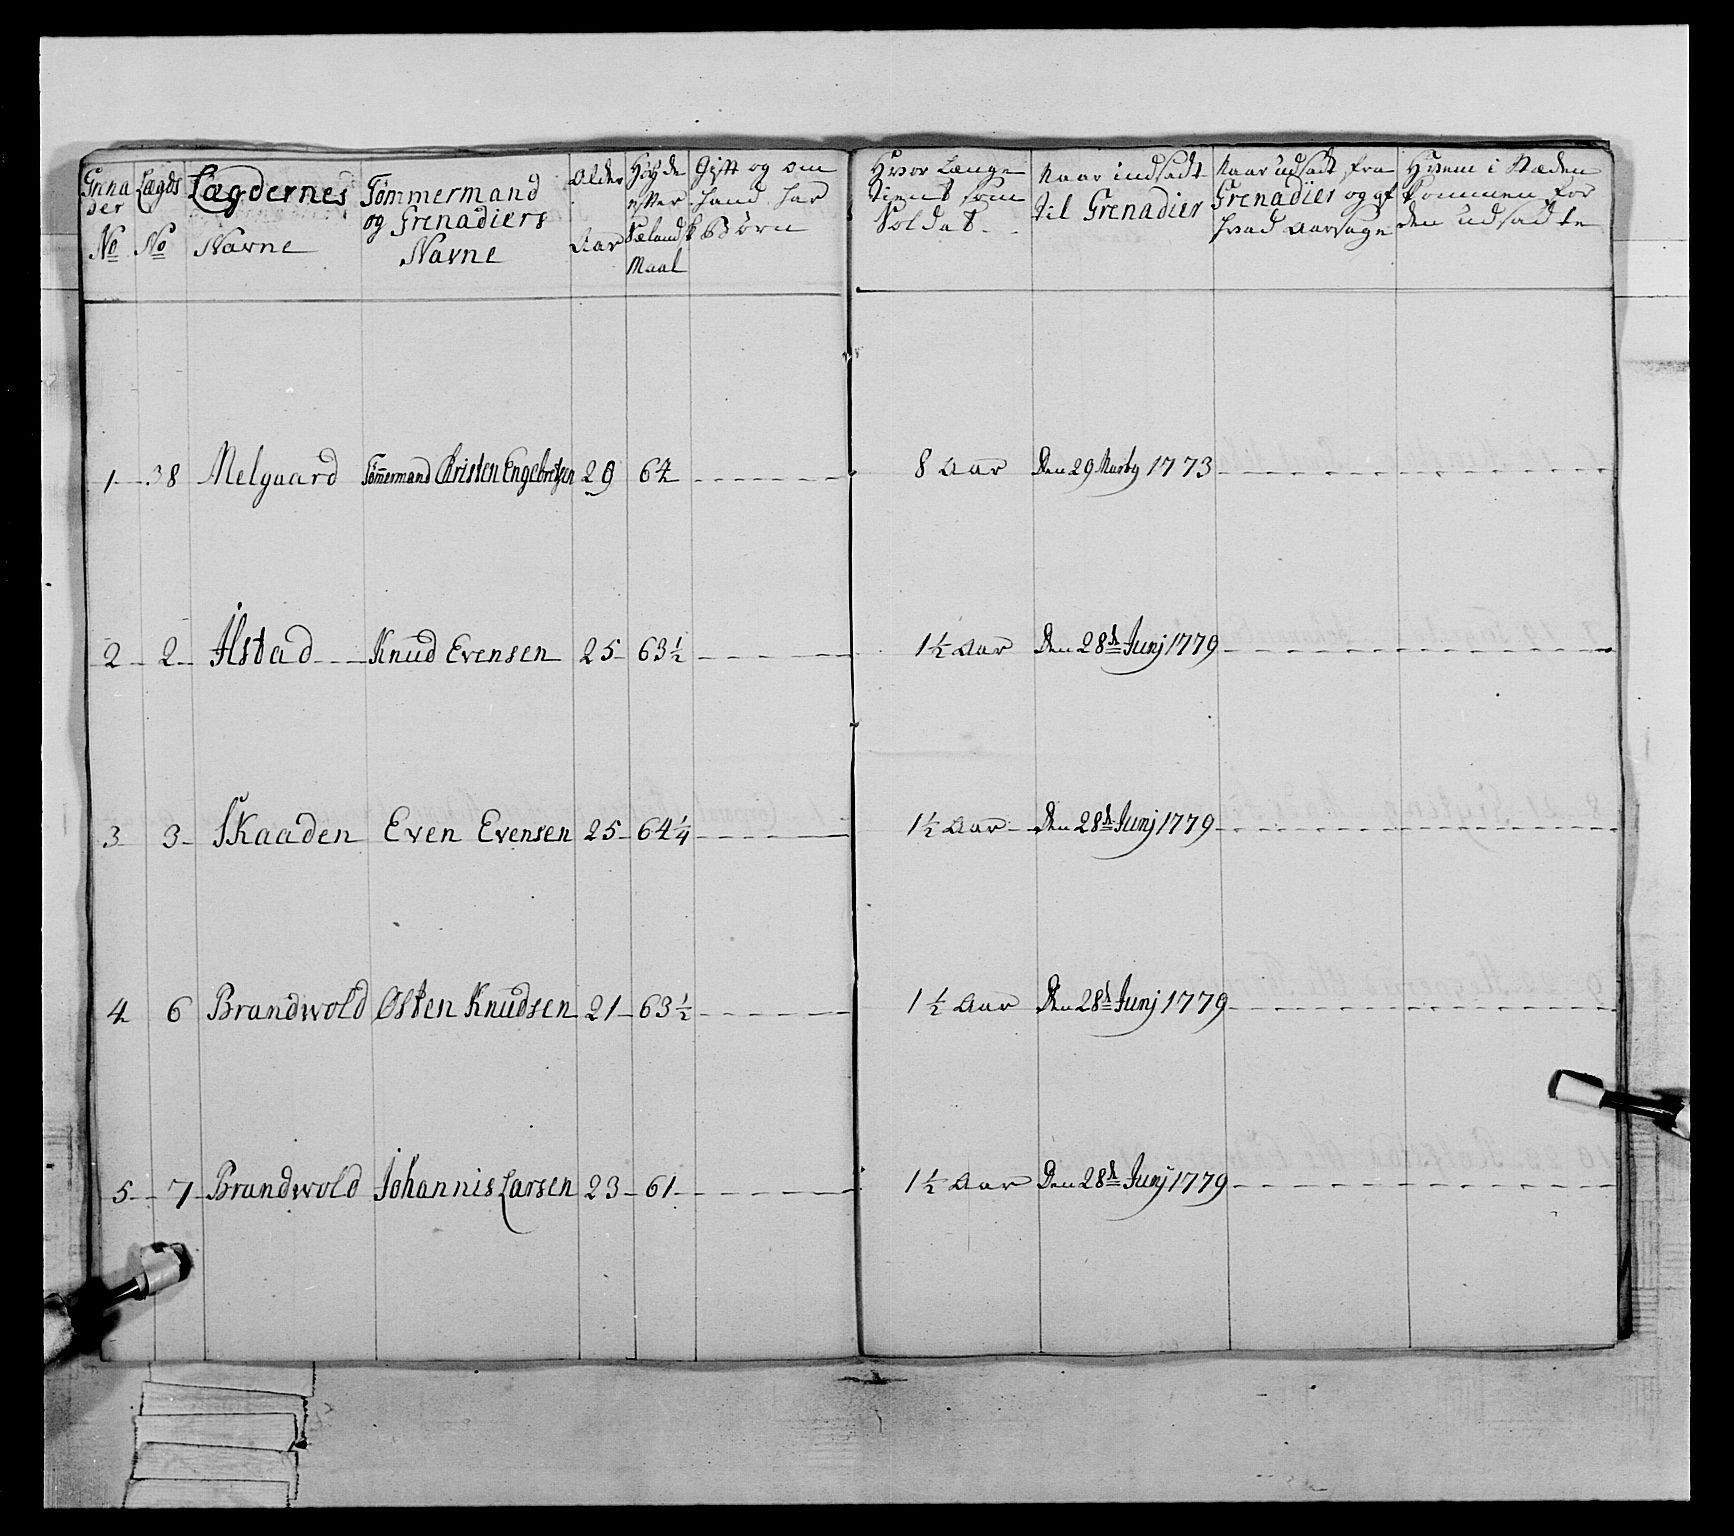 Grna der No
Lægds No
Lægdernes Navne
Tømmermand og Grenadiers Navne
Alder Aar
Høyde efter Sælandsk Maal
Gift og om hand har Børn
Hvor Længe tient som Soldat
Naar indsadt til Grenadier
Naar udsadt fra Grenadier og af hvad Aarsage
Hvem i Stæden kommen for den udsadte
1 38 Melgaard Tømmermand Christen Engebretsen 29 64 8 Aar Den 29 1773
2 2 Alstad Knud Evensen 25 63½ 1½ Aar Den 28de Junj 1779
3 3 Skaaden Even Evensen 25 64¼ 1½ Aar Den 28de Junj 1779
4 6 Brandwold Østen Knudsen 21 63½ 1½ Aar Den 28de Junj 1779
5 7 Brandwold Johannis Larsen 23 61 1½ Aar Den 28de Junj 1779